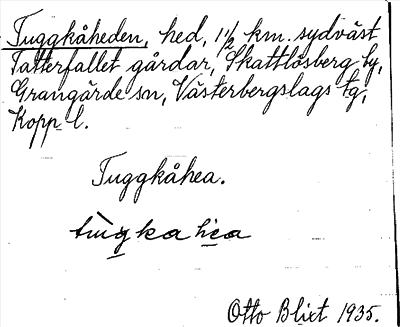 Tuggkåheden, hed, 1 1/2 km. sydväst
Tatterfallet gårdar, Skattlösberg by,
Grangärde sn, Västerbergslags tg,
Kopp. l.
Tuggkåhea.
Otto Blixt 1935.